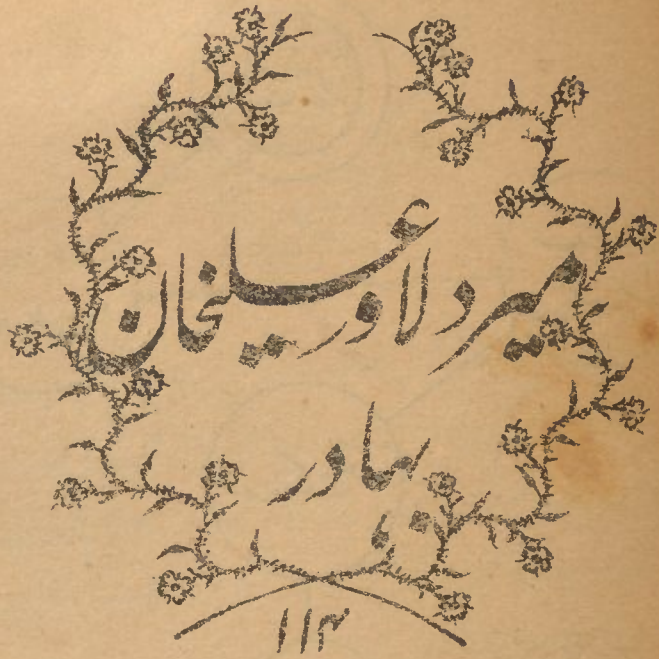 میر دلاور علیخان
بہادر
۱۱۳